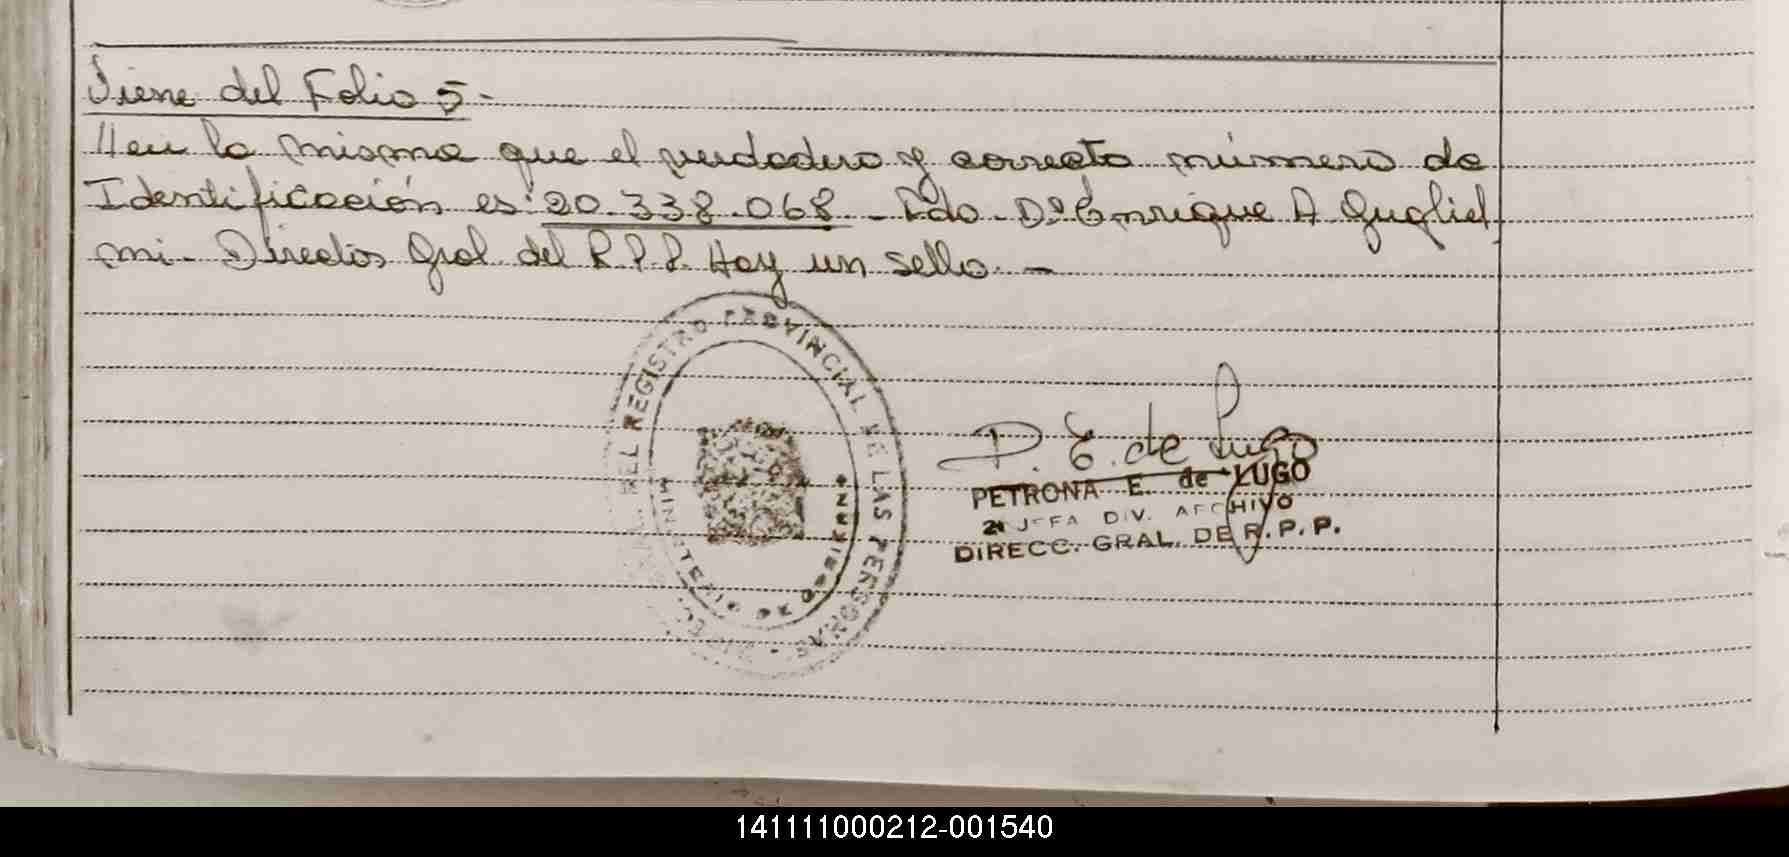 Viene del Folio 5-
"en la misma que el verdadero y correcto número de
Identificación es: 20.338.068. - Fdo. Dr. Enrique A Gugliel
mi - Director Gral. del R.P.P. Hay un sello. -
DEL REGISTRO PROVINCIAL DE LAS PERSONAS
MINISTERIO DE GOBIERNO
P. E. de Lugo
PETRONA E. de LUGO
JEFA DIV. ARCHIVO
DIRECC. GRAL. DE R. P. P.
141111000212-001540